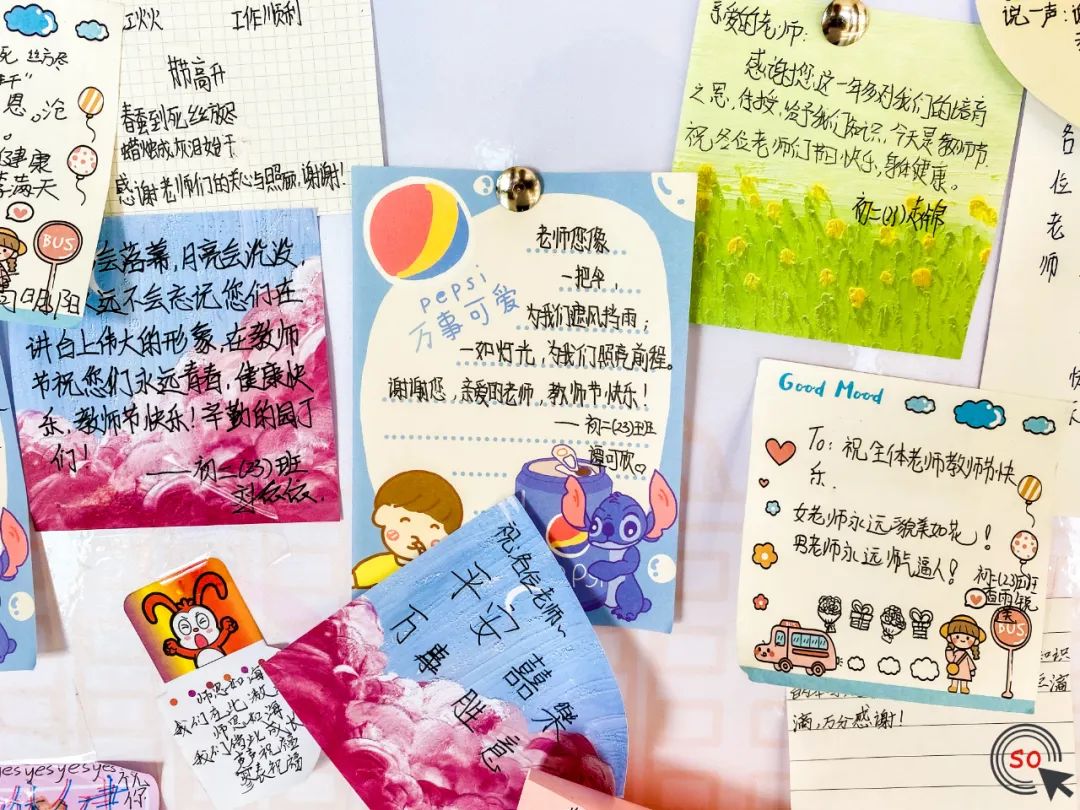 工作顺利
步步高升
春蚕到死丝方尽
蜡烛成灰泪始干
感谢老师们的关心与照顾,谢谢!
恩。沧
健康
满天
BUS
会落幕,月亮会沉没,
远不会忘记您们在
讲台上伟大的形象,在教师
节祝您们永远青春,健康快
乐,教师节快乐!辛勤的园丁
们!
——初二(23)班
pepsi
万事可爱
老师您像
一把伞,
为我们遮风挡雨;
一如灯光,为我们照亮前程。
谢谢您,亲爱的老师,教师节快乐!
——初二(23)班
谭可欣
亲爱的老师:
感谢您这一年多对我们的培育
之恩,传授,给予我们知识,今天是教师节
祝各位老师们节日快乐,身体健康。
初二(21)
说一声:
各
位
老
师
Good Mood
To:祝全体老师教师节快
乐.
女老师永远貌美如花!
男老师永远帅气逼人!
初二(23)班
BUS
祝各位老师~
平安喜乐
万事胜意
师恩如海
我们在此激
师恩如海
我们借此成长
滴,万分感谢!
yesyesyesyes
祝
你
SO